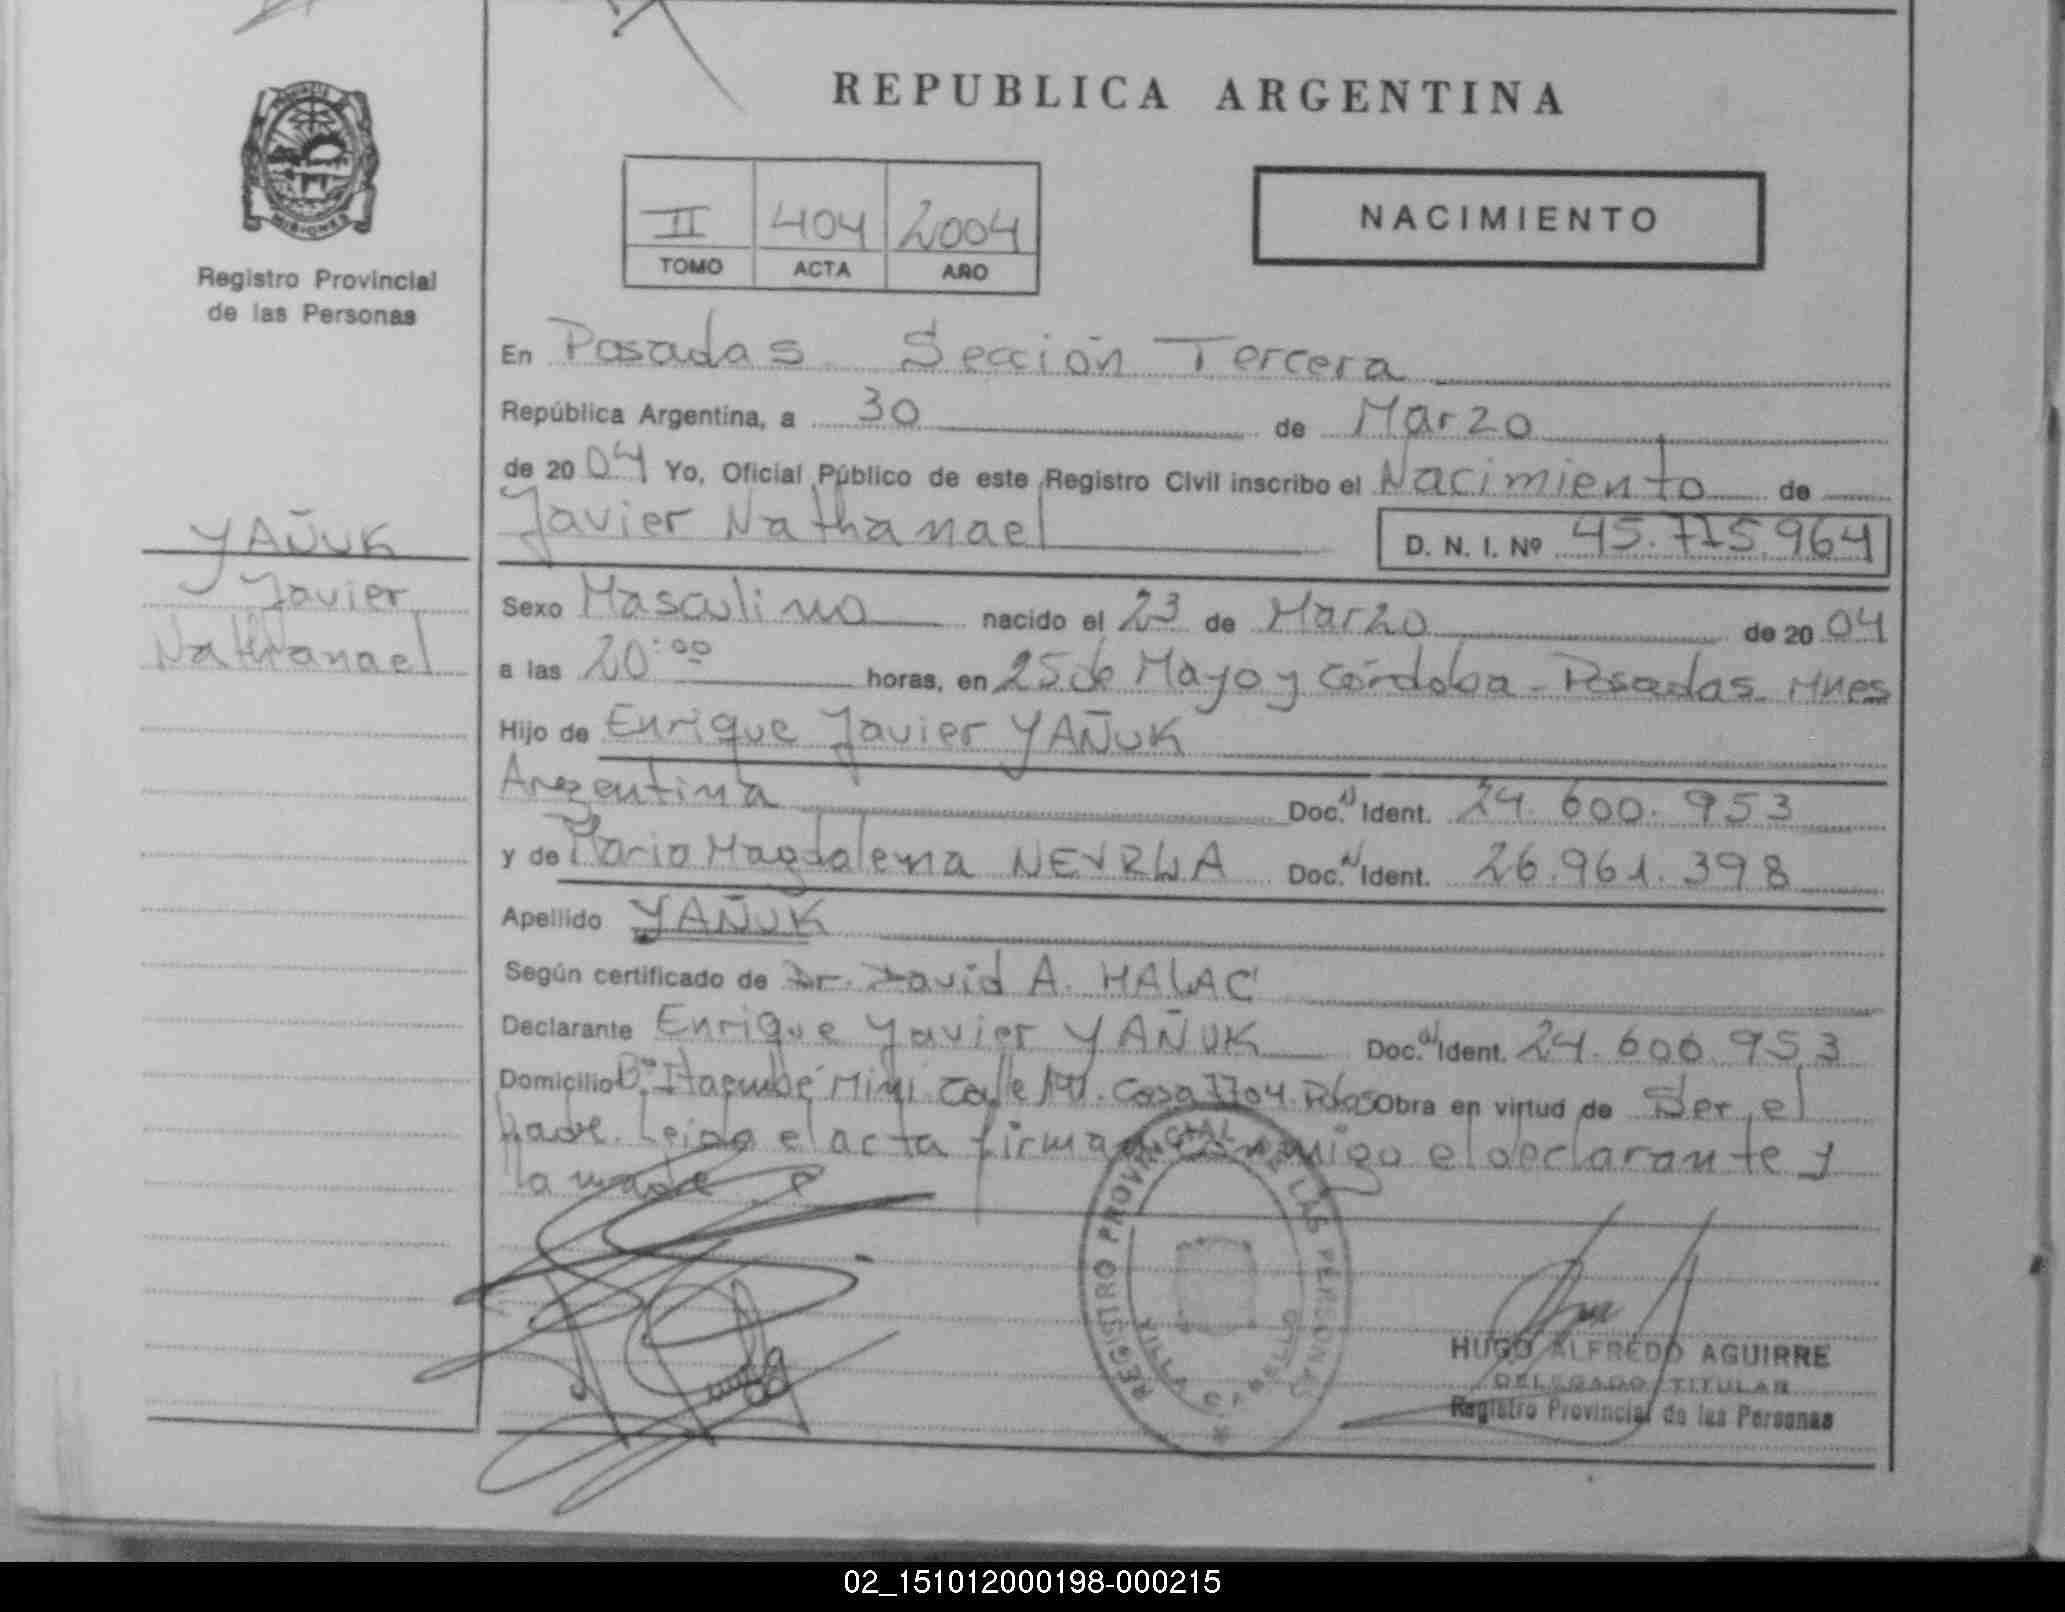 REPUBLICA ARGENTINA
PROVINCIA DE
MISIONES
Registro Provincial
de las Personas
II 404 2004
TOMO ACTA AÑO
NACIMIENTO
En Posadas Sección Tercera
República Argentina, a 30 de Marzo
de 2004 Yo, Oficial Público de este Registro Civil inscribo el Nacimiento de
Javier Nathanael D. N. I. Nº 45.715.964
YAÑUK
Javier
Nathanael
Sexo Masculino nacido el 23 de Marzo de 2004
a las 20:00 horas, en 25 de Mayo y Córdoba - Posadas Mnes
Hijo de Enrique Javier YAÑUK
Argentina Doc. Ident. 24.600.953
y de Maria Magdalena Doc. Ident. 26.961.398
Apellido YAÑUK
Según certificado de Dr. David A. HALAC
Declarante Enrique Javier YAÑUK Doc. Ident. 24.600.953
Domicilio Bº Itaembé Mini Calle Casa 7704 Pdas Obra en virtud de Ser el
padre. Leida el acta firma conmigo el declarante y
la madre
REGISTRO PROVINCIAL DE LAS PERSONAS
VILLA CABELLO
HUGO ALFREDO AGUIRRE
DELEGADO TITULAR
Registro Provincial de las Personas
02_151012000198-000215